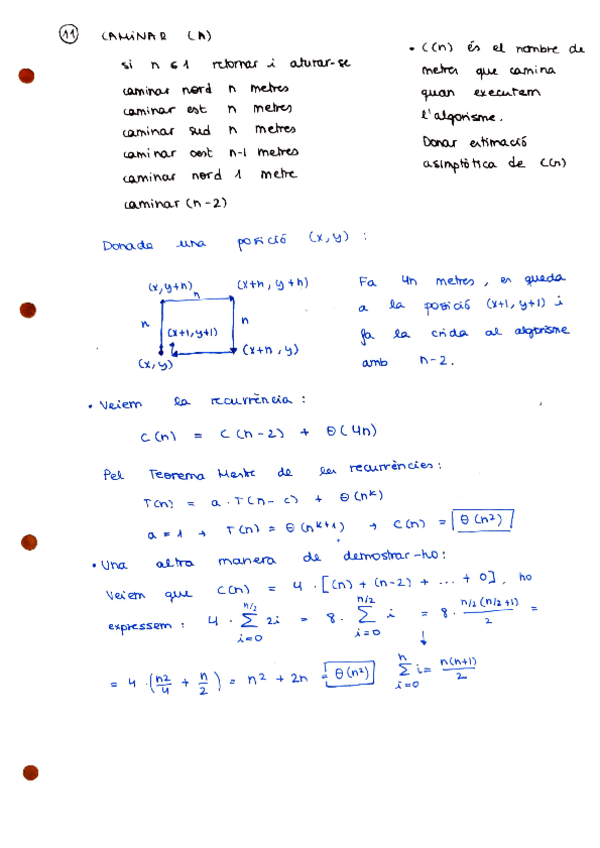 11 CAMINAR (A)
si n ≤ 1 retornar i aturar-se
caminar nord n metres
caminar est n metres
caminar sud n metres
caminar oest n-1 metres
caminar nord 1 metre
caminar (n-2)
• C(n) és el nombre de
metres que camina
quan executem
l'algorisme.
Donar estimació
asimptòtica de C(n)
Donada una posició (x,y) :
(x,y+n) n (x+n, y+n)
n (x+1,y+1) n
(x,y) (x+n, y)
Fa 4n metres, es queda
a la posició (x+1, y+1) i
fa la crida al algorisme
amb n-2.
• Veiem la recurrència :
C(n) = C(n-2) + Θ(4n)
Pel Teorema Mestre de les recurrències:
T(n) = a · T(n-c) + Θ(n^k)
a = 1 → T(n) = Θ(n^k+1) → C(n) = Θ(n²)
• Una altra manera de demostrar-ho:
Veiem que C(n) = 4 · [(n) + (n-2) + ... + 0], ho
expressem : 4 · n/2 Σ i=0 2i = 8 · n/2 Σ i=0 i = 8 · n/2 (n/2 +1) / 2 =
↓
= 4 · (n2/4 + n/2) = n² + 2n = Θ(n²) n Σ i=0 i = n(n+1) / 2